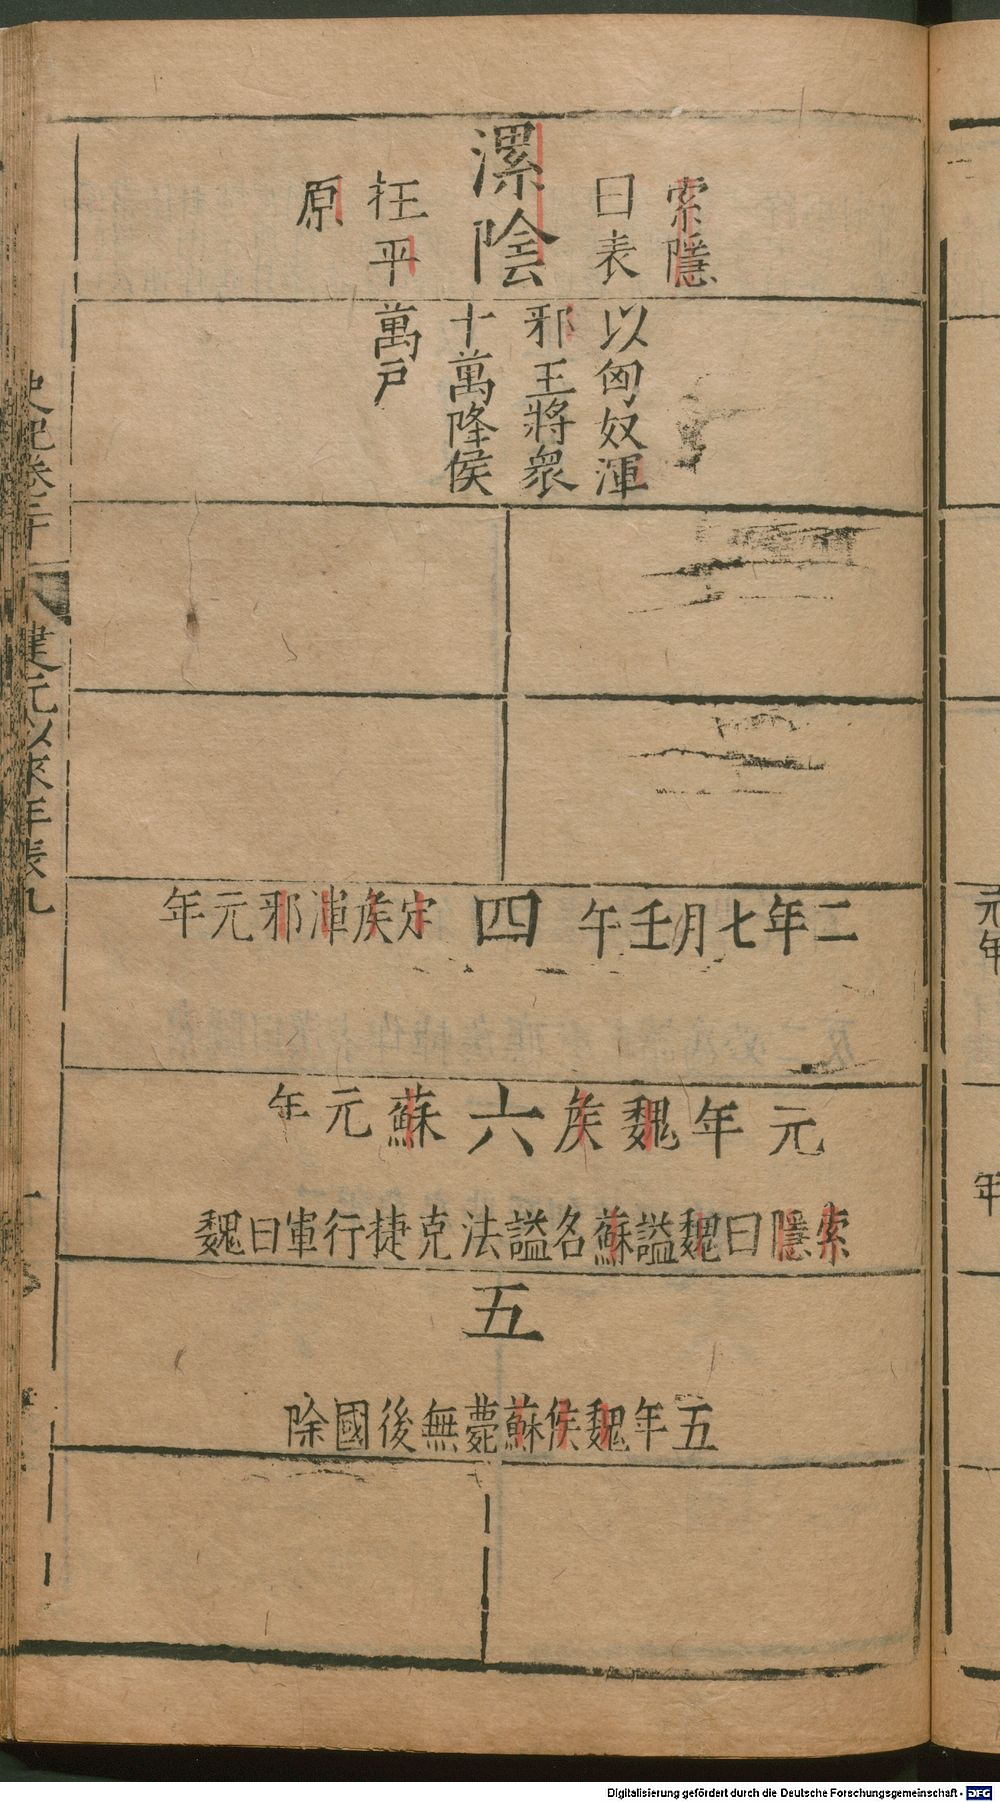 索隱
曰表
漯陰
在平
原
以匈奴渾
邪王將衆
十萬降侯
萬戶
二年七月壬午
四
定矦渾邪元年
元年魏矦
六
蘇元年
索隱曰魏謚蘇名謚法克捷行軍曰魏
五
五年魏侯蘇薨無後國除
史記卷二十
建元以來年表八
元年
年
Digitalisierung gefördert durch die Deutsche Forschungsgemeinschaft - DFG